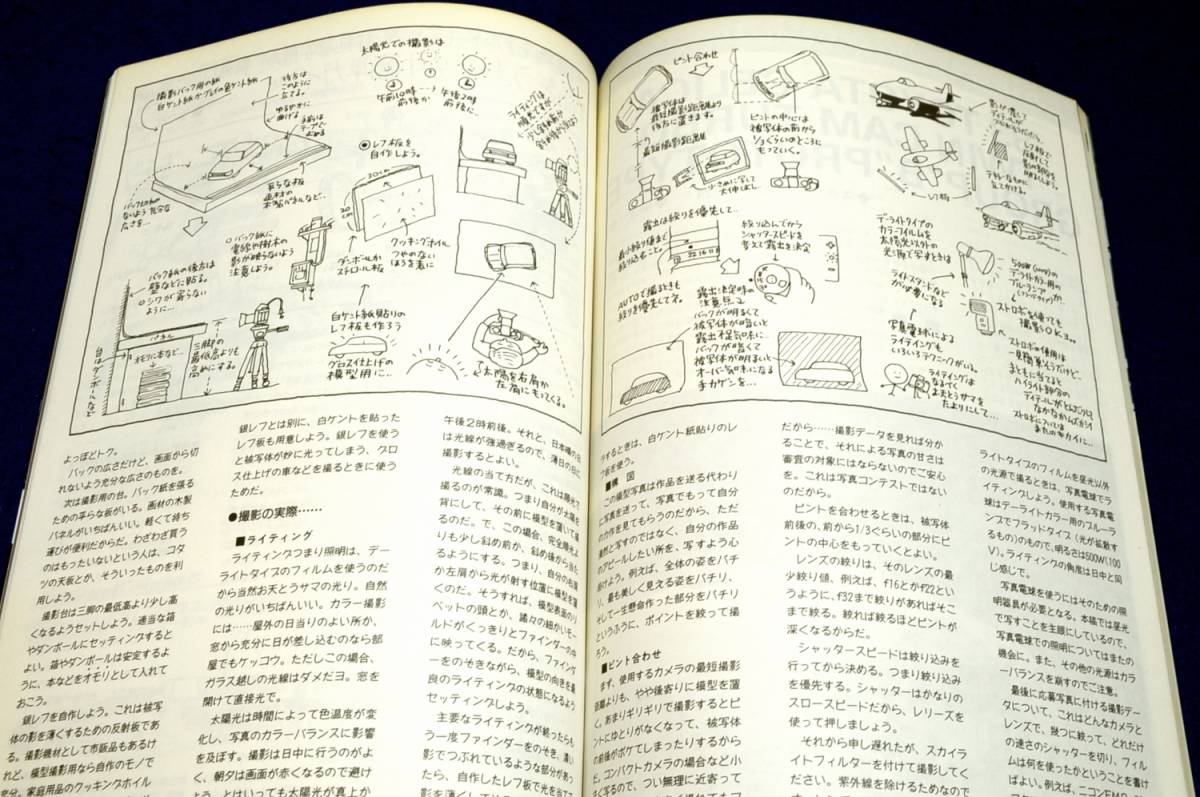 撮影バック用の紙
白ケント紙かグレイの色ケント紙
後方は
このように
立てる。
ゆるやかに
曲げる
手前は
テープで
止める
太陽光での撮影は
午前10時
前後か
午後2時
前後に…
バックの紙が
ないよう充分な
広さを…
平らな板
画材の
木製パネルなど…
●レフ板を
自作しよう。
30cm
20cm
クッキングホイル
つやのない
ほうを表に
ダンボールか
ストロール板
○バック紙に
電線や樹木の
影が映らない
よう
注意しよう。
バック紙の後方は
壁などに貼る。
○シワが寄らない
ように…
パネル
オモリに本など…
台はダンボールなど
三脚の
最低高よりも
高めにする。
白ケント紙貼りの
レフ板も作ろう
グロス仕上げの
模型用に…
太陽を右肩か
左肩にもってくる。
ピント合わせ
被写体は
最短撮影距離より
後方に置きます。
最短撮影距離
ピントの中心は
被写体の前から
1/3ぐらいのところに
もっていく。
小さめに写して
大伸ばし
露出は絞りを優先して…
最小絞り値まで
絞り込むこと。
22 16 11 8
絞り込んでから
シャッタースピードを
考えて露出を決定
AUTOで撮るときも
絞りを優先してネ。
露出決定時の
注意点2
バックが明るくて
被写体が暗いと
露出不足気味に…
バックが暗くて
被写体が明るいと
オーバー気味になる
手カゲンを…
影が濃くて
レフ板で
反射して
影の部分を
明るくしよう。
テキトーなものに
立てかける。
レフ板
デーライトタイプの
カラーフィルムを
太陽光以外の
光源で写すときは
ライトスタンドなど
が必要になる
写真電球による
ライティングも
いろいろテクニックがいる。
ライティングは
なるべく
お天とうサマを
たよりにして…
500W(100V)の
デーライトカラー用の
ブルーランプか
ストロボを使っても
撮影OKよ。
ストロボの使用は
一見簡単そうだけど…
まともに当てると
ハイライト部分の
ディテールがとんだりして
なかなかムズカシイ
ストロボについては
またのキカイに…
よっぽどトク。
　バックの広さだけど、画面から切
れないよう充分な広さのものを。
　次は撮影用の台。バック紙を張る
ための平らな板がいる。画材の木製
パネルがいちばんいい。軽くて持ち
運びが便利だからだ。わざわざ買う
のはもったいないという人は、コタ
ツの天板とか、そういったものを利
用しよう。
　撮影台は三脚の最低高より少し高
くなるようセットしよう。適当な箱
やダンボールにセッティングすると
よい。箱やダンボールは安定するよ
うに、本などをオモリとして入れて
おこう。
　銀レフを自作しよう。これは被写
体の影を薄くするための反射板であ
る。撮影機材として市販品もあるけ
れど、模型撮影用なら自作のモノで
充分。家庭用品のクッキングホイル
　銀レフとは別に、白ケントを貼った
レフ板も用意しよう。銀レフを使う
と被写体が妙に光ってしまう、グロ
ス仕上げの車などを撮るときに使う
ためだ。
●撮影の実際……
■ライティング
　ライティングつまり照明は、デー
ライトタイプのフィルムを使うのだ
から当然お天とうサマの光り。自然
の光りがいちばんいい。カラー撮影
には……屋外の日当りのよい所か、
窓から充分に日が差し込むのなら部
屋でもケッコウ。ただしこの場合、
ガラス越しの光線はダメだヨ。窓を
開けて直接光で。
　太陽光は時間によって色温度が変
化し、写真のカラーバランスに影響
を及ぼす。撮影は日中に行うのがよ
く、朝夕は画面が赤くなるので避け
よう。とはいっても太陽が真上か
午後2時前後。それと、日本晴の日
は光線が強過ぎるので、薄日の日に
撮影するとよい。
　光線の当て方だが、これは順光で
撮るのが常識。つまり自分が太陽を
背にして、その前に模型を置いて撮
るのだ。で、この場合、完全順光よ
りも少し斜め前か、斜め後から当た
るようにする。つまり、自分の右肩
か左肩から光が射す位置に模型を置
くのだ。そうすれば、模型表面のリ
ベットの頭とか、諸々の細かいモー
ルドがくっきりとファインダーの中
に映ってくる。だから、ファインダ
ーをのぞきながら、模型の向きを最
良のライティングの状態になるよう
セッティングしよう。
　主要なライティングが終ったらも
う一度ファインダーをのぞき、濃い
影でつぶれているような部分があっ
たら、自作したレフ板で光を当てて
影を薄くして
介するときは、白ケント紙貼りのレ
フ板を使う。
■構　図
　この模型写真は作品を送る代わり
に写真を送って、写真でもって自分
の力作を見てもらうのだから、ただ
漫然と写すのではなく、自分の作品
のアピールしたい所を、写すよう心
掛けよう。例えば、全体の姿をバチ
リ、最も美しく見える姿をバチリ、
そして一生懸命作った部分をバチリ
というふうに、ポイントを絞って撮
ろう。
■ピント合わせ
　まず、使用するカメラの最短撮影
距離よりも、やや後寄りに模型を置
く。あまりギリギリで撮影するとピ
ントにゆとりがなくなって、被写体
の前後がボケてしまったりするから
だ。コンパクトカメラの場合など小
さく写るので、つい無理に近寄って
だから……撮影データを見れば分か
ることで、それによる写真の甘さは
審査の対象にはならないのでご安心
を。これは写真コンテストではない
のだから。
　ピントを合わせるときは、被写体
前後の、前から1/3ぐらいの部分にピ
ントの中心をもっていくとよい。
　レンズの絞りは、そのレンズの最
少絞り値、例えば、f16とかf22とい
うように、f32まで絞りがあればそこ
まで絞る。絞れば絞るほどピントが
深くなるからだ。
　シャッタースピードは絞り込みを
行ってから決める。つまり絞り込み
を優先する。シャッターはかなりの
スロースピードだから、レリーズを
使って押しましょう。
　それから申し遅れたが、スカイラ
イトフィルターを付けて撮影してく
ださい。紫外線を除けるためなので
ライトタイプのフィルムを昼光以外
の光源で撮るときは、写真電球でラ
イティングしよう。使用する写真電
球はデーライトカラー用のブルーラ
ンプでフラッドタイプ（光が拡散す
るもの）のもので、明るさは500W（100
V）。ライティングの角度は日中と同
じ感じで。
　写真電球を使うにはそのための照
明器具が必要となる。本稿では昼光
で写すことを主眼にしているので、
写真電球での照明についてはまたの
機会に。また、その他の光源はカラ
ーバランスを崩すのでご注意。
　最後に応募写真に付ける撮影デー
タについて、これはどんなカメラと
レンズで、幾つに絞って、どれだけ
の速さのシャッターを切り、フィル
ムは何を使ったかということを書け
ばよい。例えば、ニコンEM2